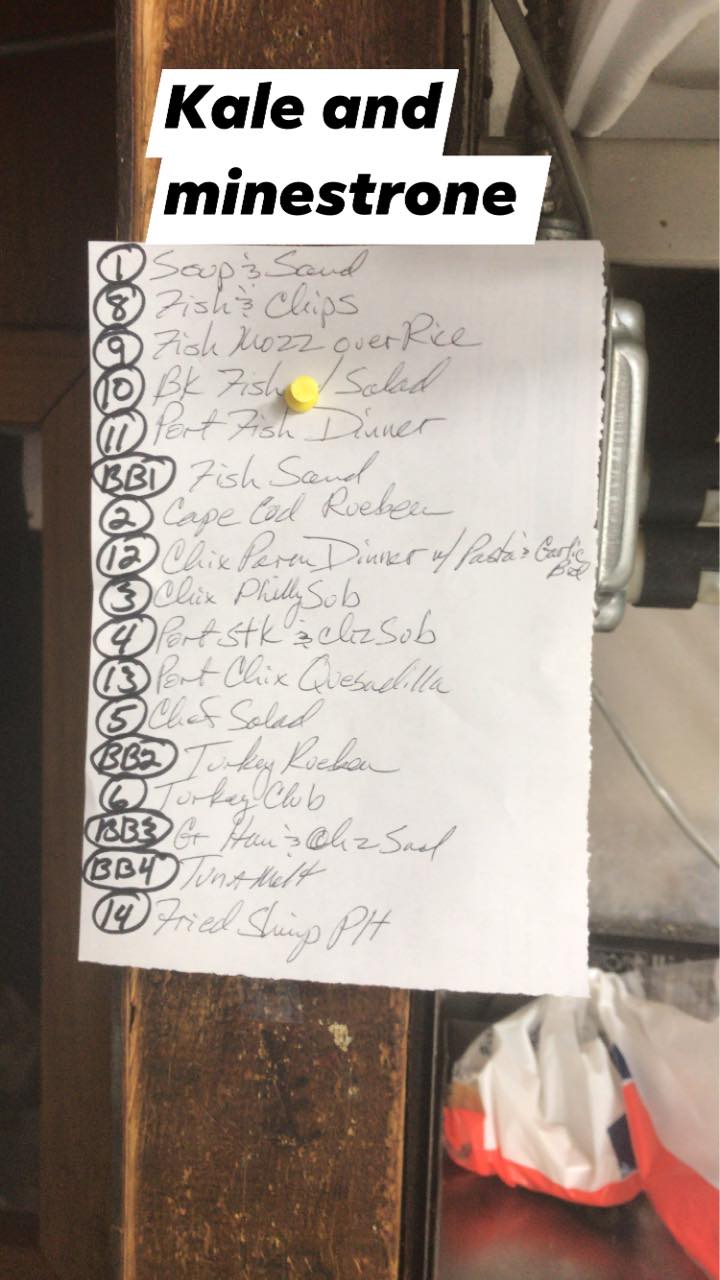 Kale and
minestrone
1 Soup & Sand
8 Fish & Chips
9 Fish Mozz over Rice
10 BK Fish / Salad
11 Port Fish Dinner
BB1 Fish Sand
2 Cape Cod Rueben
12 Chix Parm Dinner w/ Pasta & Garlic
Bred
3 Chix Philly Sub
4 Port Stk & chz Sub
13 Port Chix Quesadilla
5 Chef Salad
BB2 Turkey Rueben
6 Turkey Club
BB3 Gr Ham & Chz Sand
BB4 Tuna Melt
14 Fried Shimp PH